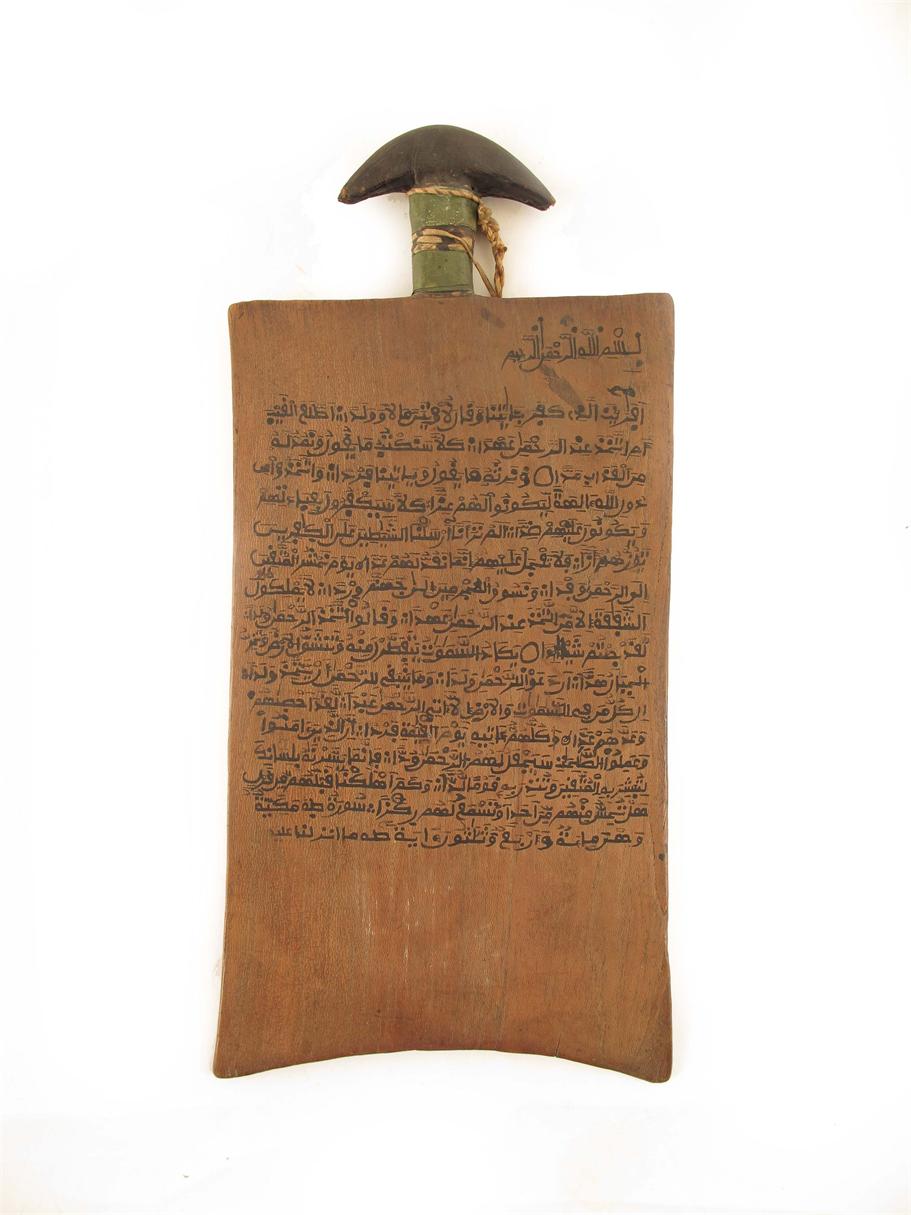 بسم الله الرحمن الرحيم
افريت الذي كفر بايتنا وقال لاوتين مالا وولدا اطلع الغيب
ام اتخذ عند الرحمن عهدا كلا سنكتب ما يقول ونمد له
من العذاب مدا ونرثه ما يقول وياتينا فردا واتخذوا من
دون الله الهة ليكونوا لهم عزا كلا سيكفرون بعبادتهم
ويكونون عليهم ضدا الم تر انا ارسلنا الشيطين على الكفرين
تؤزهم ازا فلا تعجل عليهم انما نعد لهم عدا يوم نحشر المتقين
الى الرحمن وفدا ونسوق المجرمين الى جهنم وردا لا يملكون
الشفعة الا من اتخذ عند الرحمن عهدا وقالوا اتخذ الرحمن ولدا
لقد جئتم شيئا ادا يكاد السموت يتفطرن منه وتنشق الارض وتخر
الجبال هدا ان دعوا للرحمن ولدا وما ينبغي للرحمن ان يتخذ ولدا
ان كل من في السموت والارض الا اتي الرحمن عبدا لقد احصيهم
وعدهم عدا وكلهم اتيه يوم القيمة فردا ان الذين امنوا
وعملوا الصلحت سيجعل لهم الرحمن ودا فانما يسرنه بلسانك
لتبشر به المتقين وتنذر به قوما لدا وكم اهلكنا قبلهم من قرن
هل تحس منهم من احد او تسمع لهم ركزا سورة طه مكية
وهي ماية واربع وثلثون اية طه ما انزلنا عليك